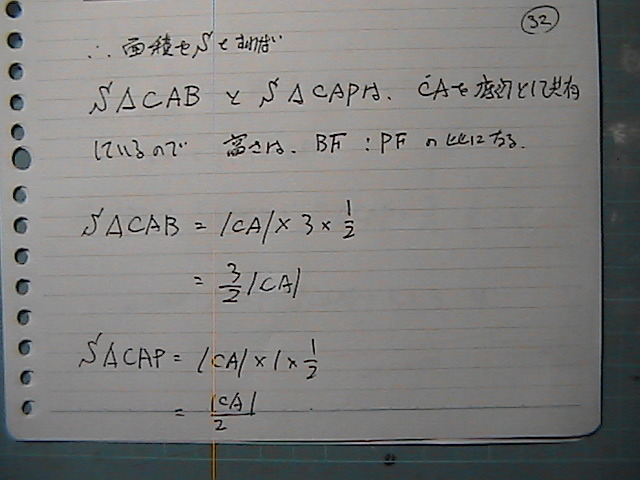 32
∴ 面積をSとすれば
S△CABとS△CAPは、CAを底辺として共有
しているので 高さは、BF:PFの比になる.
S△CAB = |CA| × 3 × 1/2
= 3/2 |CA|
S△CAP = |CA| × 1 × 1/2
= |CA|/2